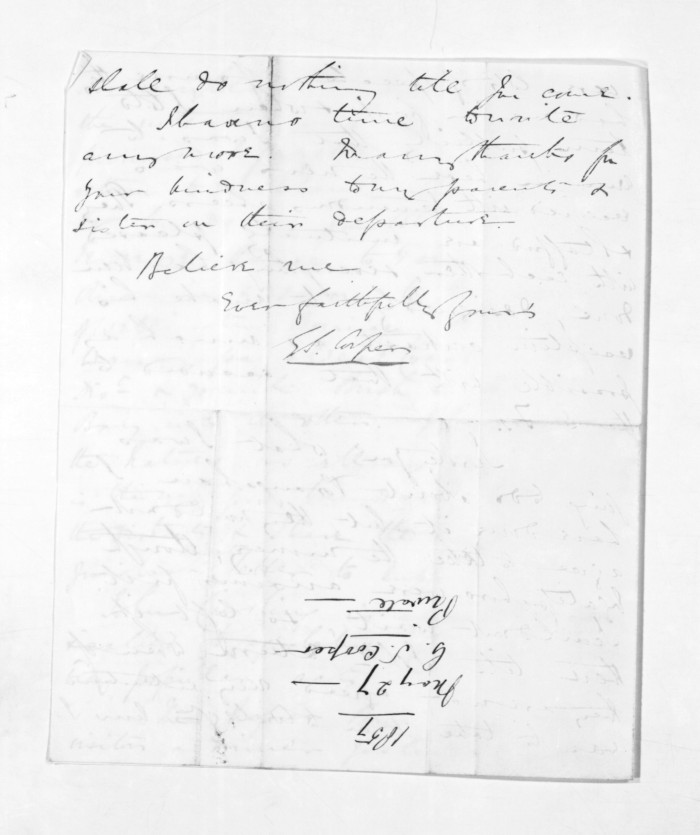 shall do nothing till you come.
I have no time to write
any more. Many thanks for
your kindness to my parents &
sister on their departure.
Believe me
Ever faithfully yours
G S. Cooper
1857
May 27
G. S. Cooper
Private